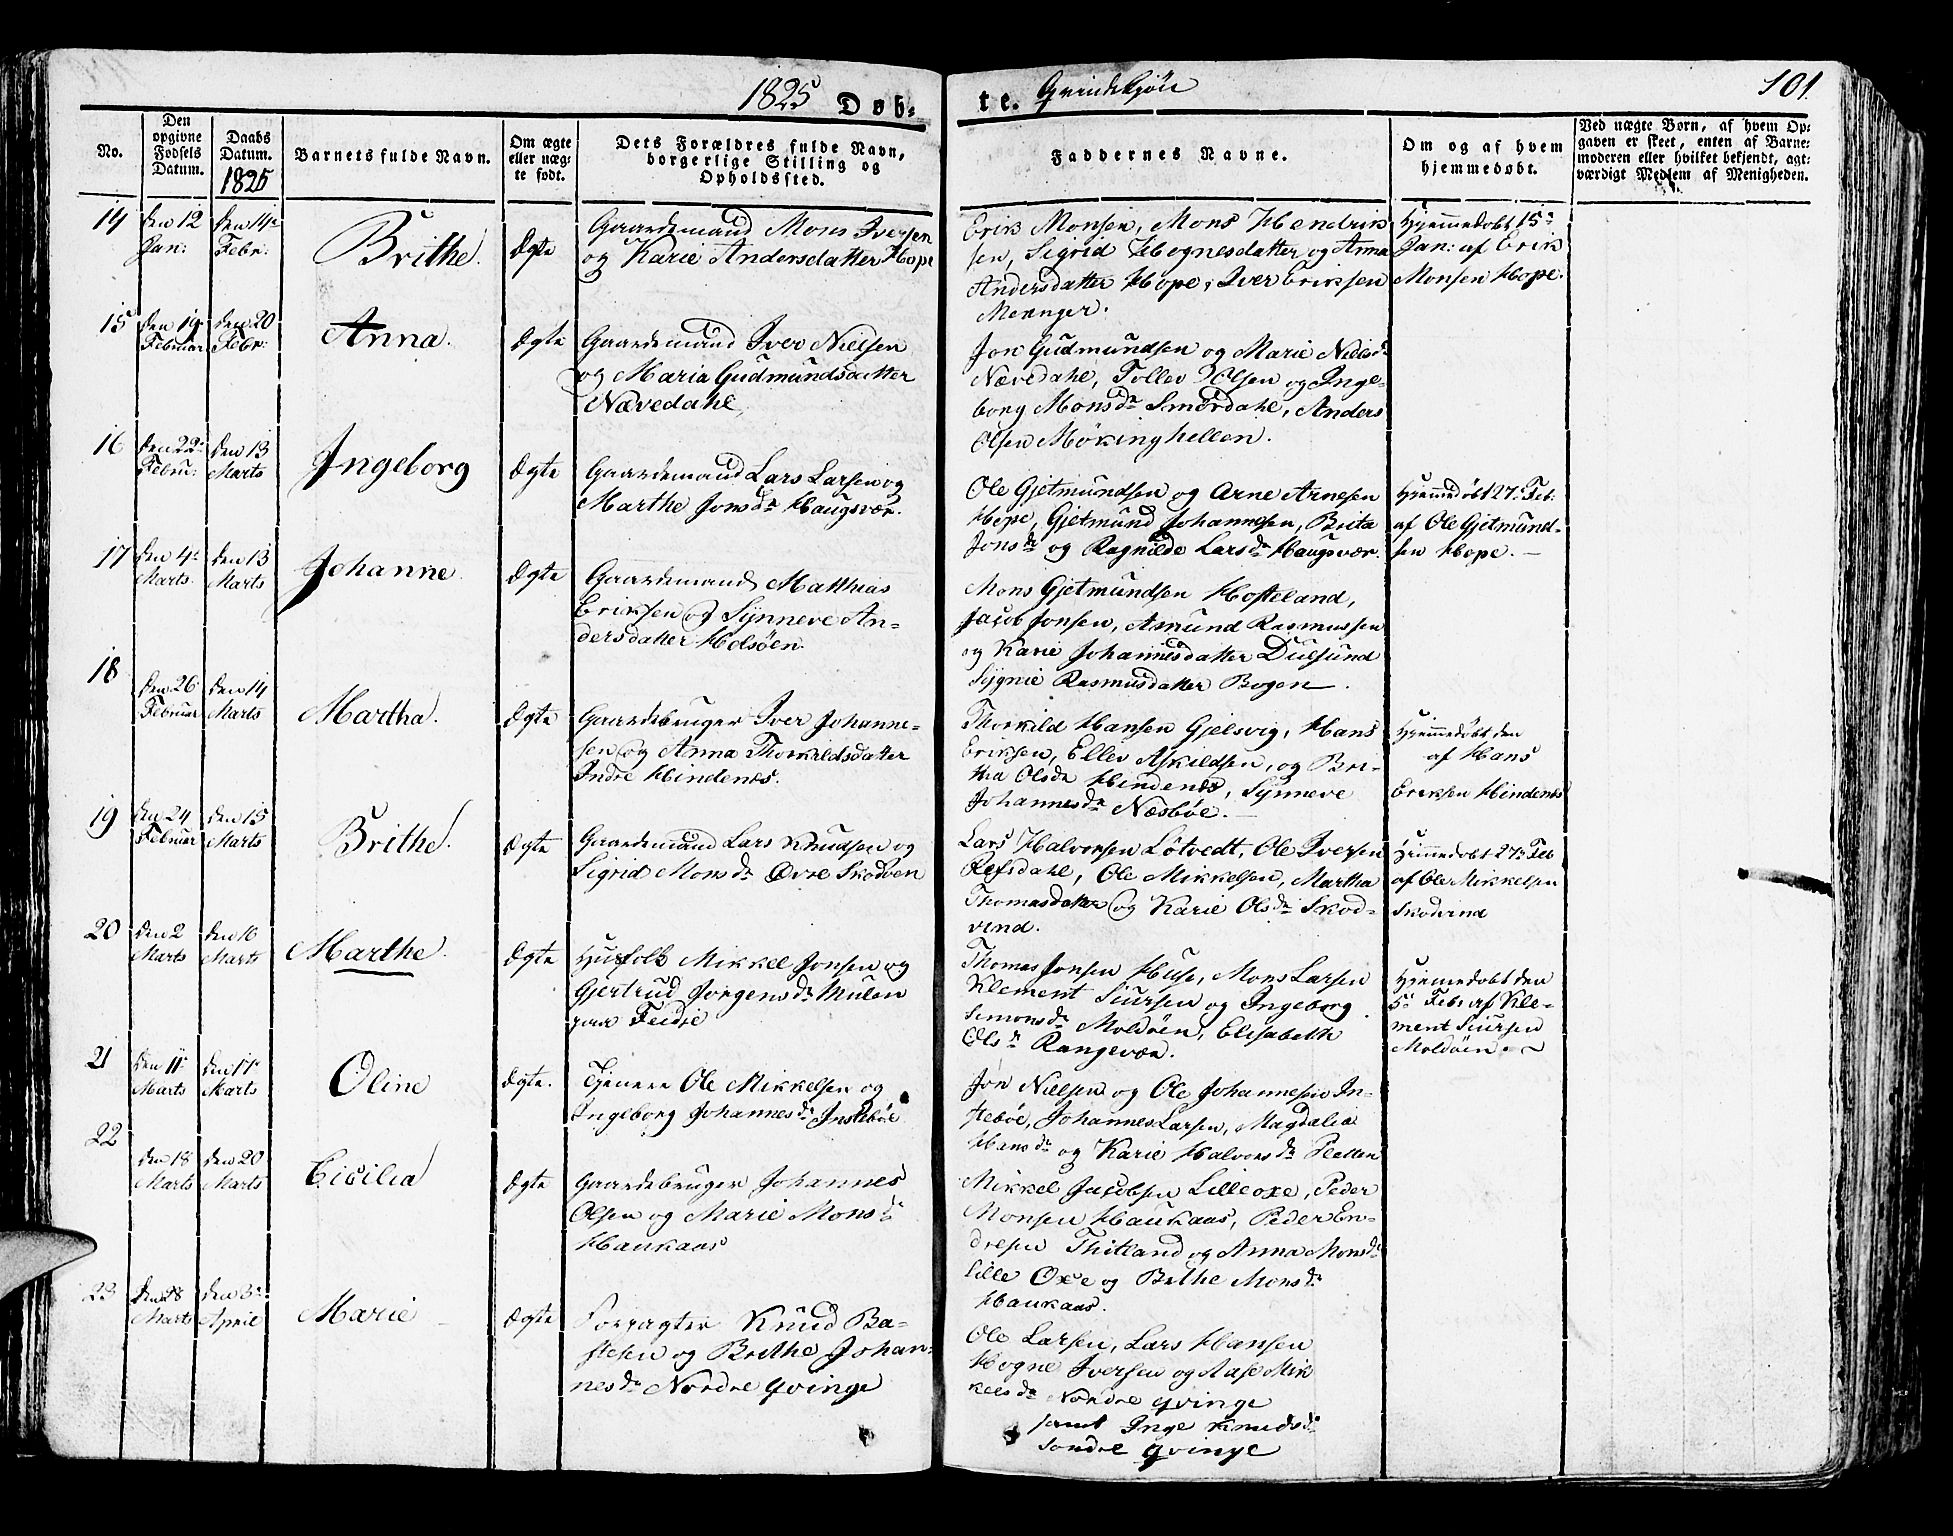 1825 Døb-
te. Qvindekjøn
101.
No.
Den opgivne Fødsels Datum.
Daabs Datum. 1825
Barnets fulde Navn.
Om ægte eller uægte født.
Dets Forældres fulde Navn, borgerlige Stilling og Opholdssted.
Faddernes Navne.
Om og af hvem hjemmedøbt.
Ved uægte Børn, af hvem Opgaven er skeet, enten af Barnemoderen eller hvilket bekjendt, agtværdigt Medlem af Menigheden.
14
den 12 Jan:
den 14de Febr:
Brithe.
Ægte
Gaardemand Mons Iversen
og Karie Andersdatter Hope
Erik Monsen, Mons Hendrik
sen, Sigrid Hognesdatter og Anna
Andersdatter Hope, Iver Eriksen
Mennger.
Hjemmedøbt 15de
Jan: af Erik
Monsen Hope.
15
den 19 Februar
den 20 Febr:
Anna.
Ægte
Gaardemand Iver Nielsen
og Maria Gudmundsdatter
Nævedahl,
Jon Gudmundsen og Marie Nielsdr
Nævedahl, Tollev Olsen og Inge-
borg Monsdr Smørdahl, Anders
Olsen Møkinghellen.
16
den 22de Febru:
den 13 Marts
Ingeborg
Ægte
Gaardemand Lars Larsen og
Marthe Jonsdr Haugsvær.
Ole Gjetmundsen og Arne Arnesen
Hope, Gjetmund Johannesen, Brita
Jonsdr og Ragnilde Larsdr Haugsvær.
Hjemmedøbt 27de Feb.
af Ole Gjetmund-
sen Hope.
17
den 4de Marts.
den 13 Marts
Johanne
Ægte
Gaardemand Matthias
Eriksen og Synneve An-
dersdatter Helsøen.
Mons Gjetmundsen Hosteland,
Jacob Jonsen, Asmund Rasmussen
og Karie Johannesdatter Duesund
Sygnie Rasmusdatter Bogen.
18
den 26 Februar
den 14 Marts
Martha.
Ægte
Gaardebruger Iver Johanne-
sen og Anna Thorkildsdatter
Indre Hindenes.
Thorkild Hansen Gjelsvig, Hans
Eriksen, Ellev Askildsen, og Bri-
tha Olsdr Hindenes, Synneve
Johannesdr Næsbøe.
Hjemmedøbt den
af Hans
Eriksen Hindenes
19
den 24 Februar
den 15 Marts
Brithe.
Ægte
Gaardemand Lars Knudsen og
Sigrid Monsdr Øvre Skodven
Lars Halvorsen Løtvedt, Ole Iversen
Refsdahl, Ole Mikkelsen, Martha
Thomasdatter og Karie Olsdr Skod-
vind.
Hjemmedøbt 27de Feb
af Ole Mikkelsen
Skodvind
20
den 2 Marts
den 16 Marts
Marthe.
Ægte
Husfolk Mikkel Jonsen og
Gjertrud Jørgensdr Mulen
paa Feidie
Thomas Jonsen Huse, Mons Larsen
Klement Siursen og Ingeborg
Simonsdr Moldøen, Elisabeth
Olsdr Rangevær.
Hjemmedøbt den
5de Feb: af Kle-
ment Siursen
Moldøen
21
den 11te Marts
den 17de Marts
Oline
Ægte.
Tjenere Ole Mikkelsen og
Ingeborg Johannesdr Instebøe
Jon Nielsen og Ole Johannesen In-
stebøe, Johannes Larsen, Magdalia
Hansdr og Karie Halvorsdr Fletten
22
den 18 Marts
den 20 Marts
Cicilia
Ægte
Gaardebruger Johannes
Olsen og Marie Monsdr
Haukaas
Mikkel Jacobsen Lilleoxe, Peder
Monsen Haukaas, Peder En-
dresen Thitland og Anna Monsdr
Lille Oxe og Brithe Monsdr
Haukaas.
23
Marts
den 3de April
Marie
Ægte
Forpagter Knud Ba-
stesen og Brithe Johan-
nesdr Nordre Qvinge
Ole Larsen, Lars Hansen
Hogne Iversen og Aase Mik
kelsdr Nordre Qvinge
samt Inge Knudsdr
Søndre Qvinge